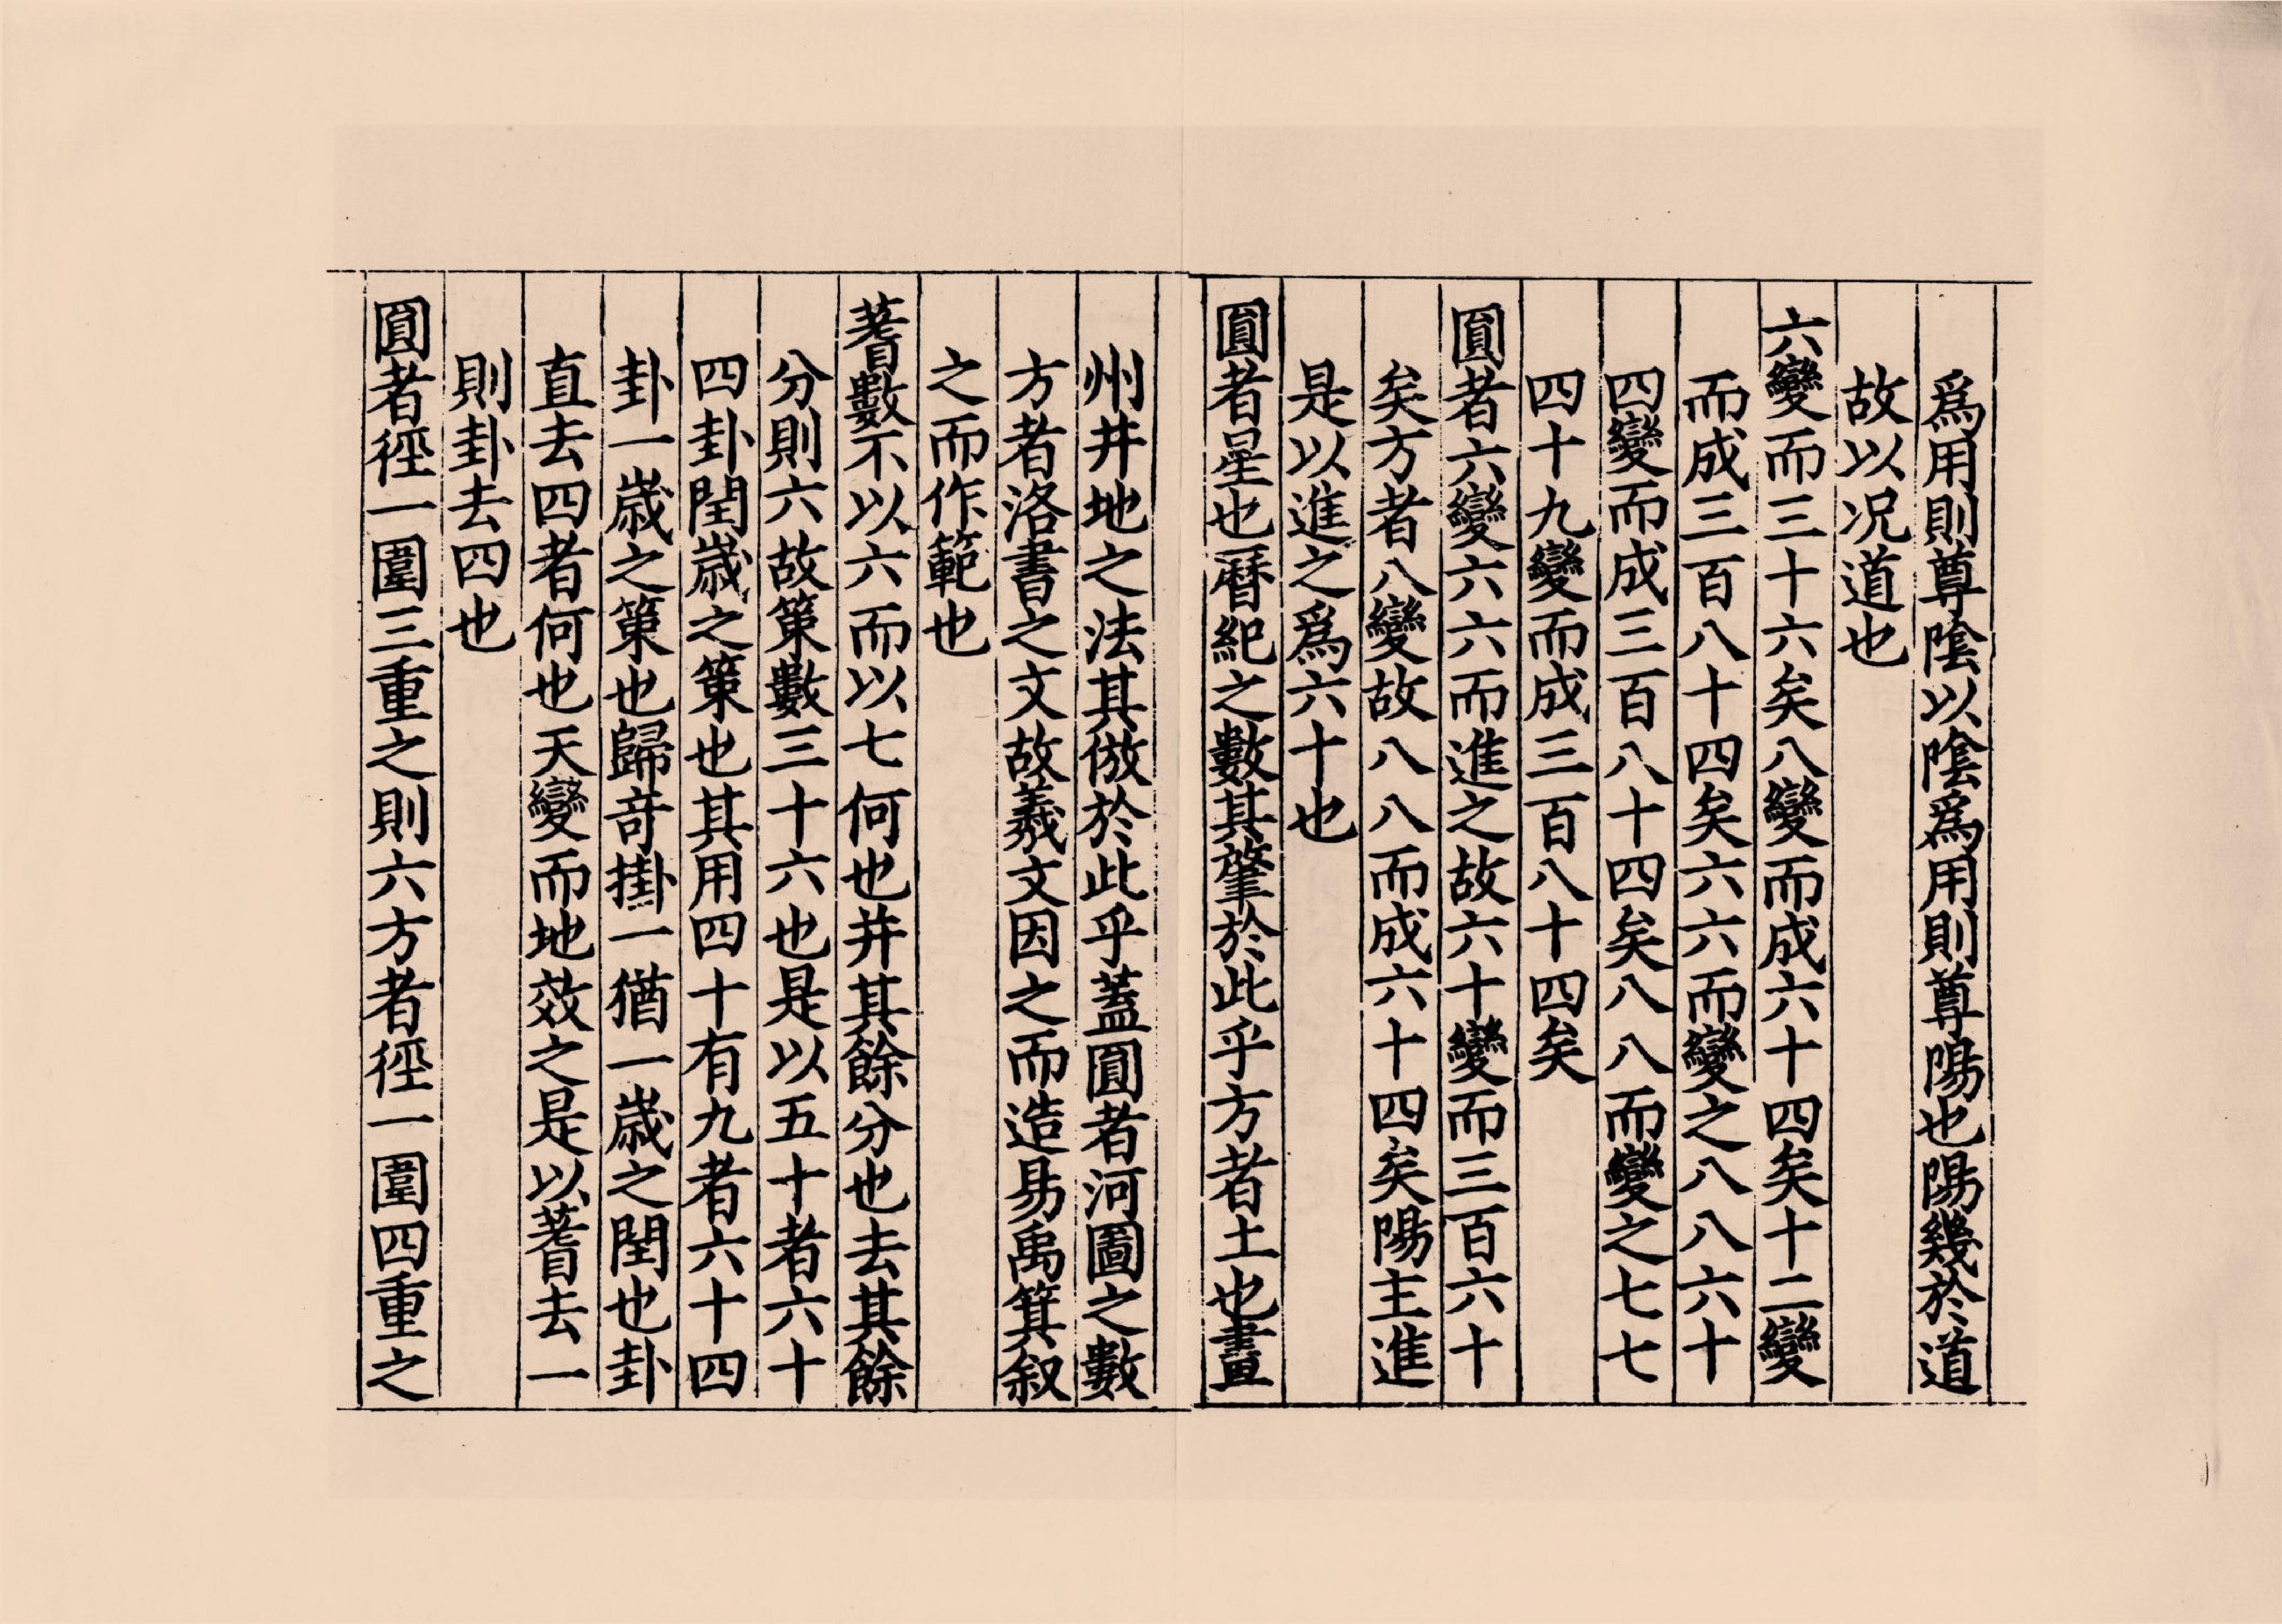 爲用則尊陰以陰爲用則尊陽也陽幾於道
故以况道也
六變而三十六矣八變而成六十四矣十二變
而成三百八十四矣六六而變之八八六十
四變而成三百八十四矣八八而變之七七
四十九變而成三百八十四矣
圓者六變六六而進之故六十變而三百六十
矣方者八變故八八而成六十四矣陽主進
是以進之爲六十也
圓者星也曆紀之數其肇於此乎方者土也畫
州井地之法其倣於此乎蓋圓者河圖之數
方者洛書之文故羲文因之而造易禹箕叙
之而作範也
蓍數不以六而以七何也并其餘分也去其餘
分則六故策數三十六也是以五十者六十
四卦閏歲之策也其用四十有九者六十四
卦一歲之策也歸奇掛一猶一歲之閏也卦
直去四者何也天變而地效之是以蓍去一
則卦去四也
圓者徑一圍三重之則六方者徑一圍四重之